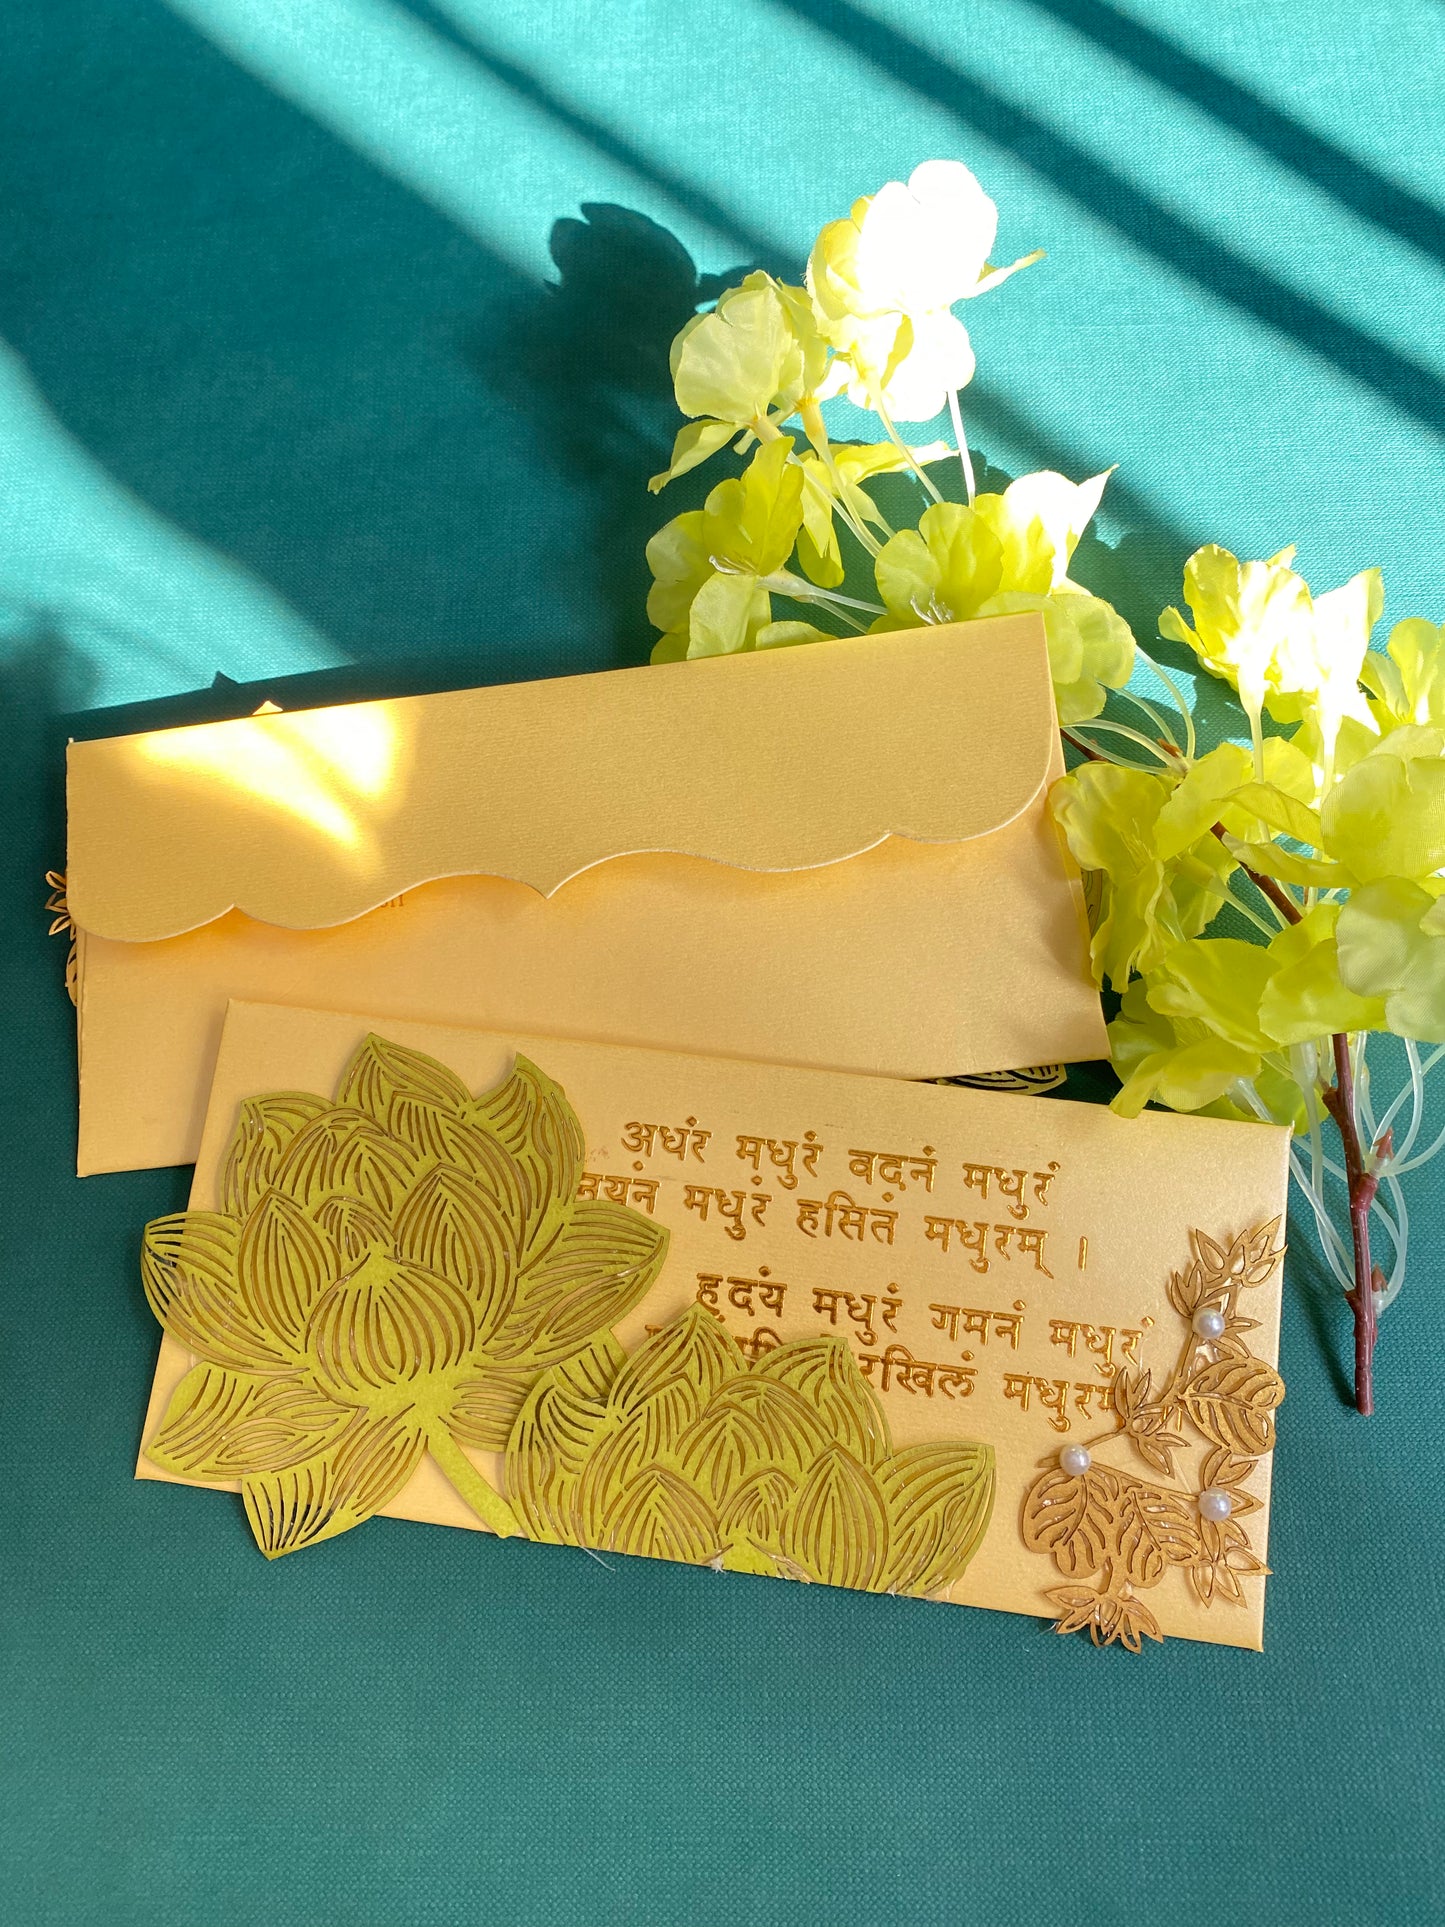 अधंर मधुरं वदनं मधुरं
नयनं मधुरं हसितं मधुरम् ।
हृदयं मधुरं गमनं मधुरं
मधुरम